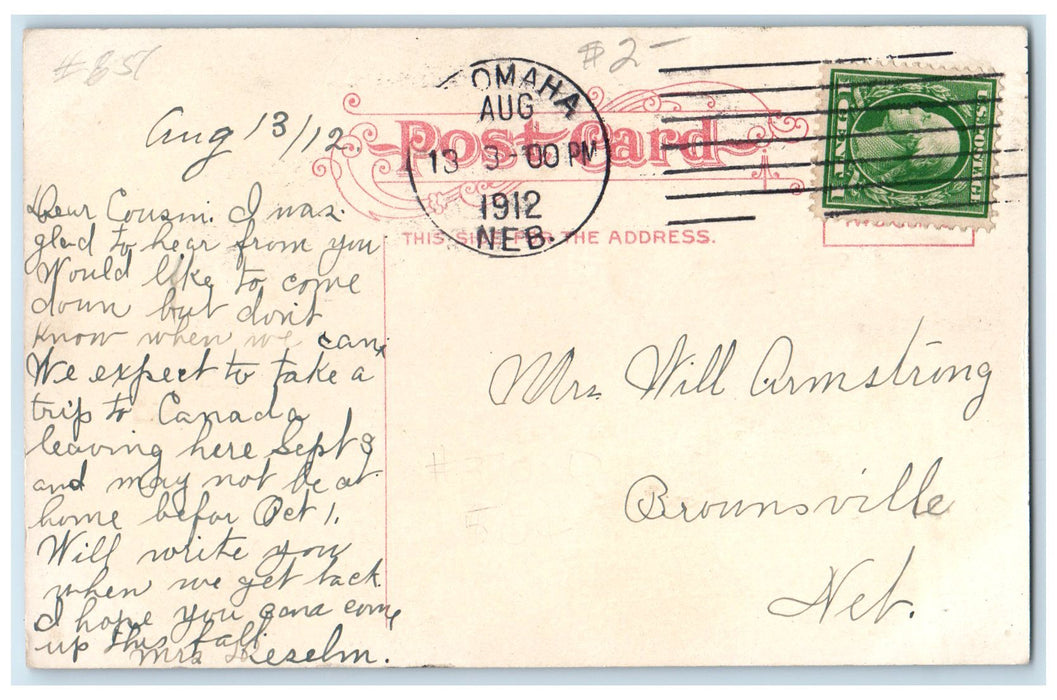 #651
$2-
Aug 13/12.
OMAHA
AUG
13 3-00 PM
1912
NEB.
Post Card
THIS SIDE FOR THE ADDRESS.
U.S. POSTAGE
Dear Cousin. I was
glad to hear from you
Would like to come
down but don't
know when we can.
We expect to take a
trip to Canada
leaving here Sept 3
and may not be at
home befor Oct 1.
Will write you
when we get back
I hope you cana come
up this fall
Mrs
Mrs Will Armstrong
Brownsville
Neb.